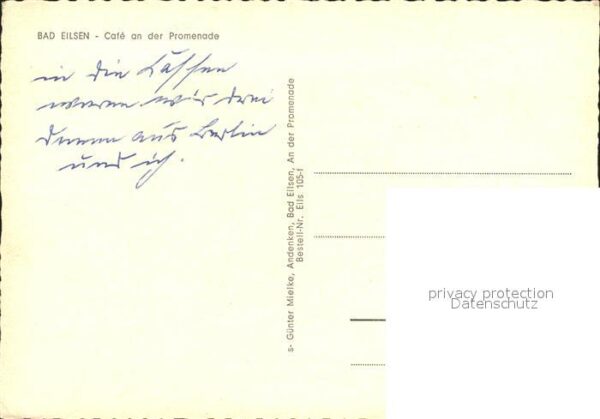 BAD EILSEN - Café an der Promenade
in die
waren wir drei
Damen aus Berlin
und ich.
s- Günter Mielke, Andenken, Bad Eilsen, An der Promenade
Bestell-Nr. Eils 105-f
privacy protection
Datenschutz